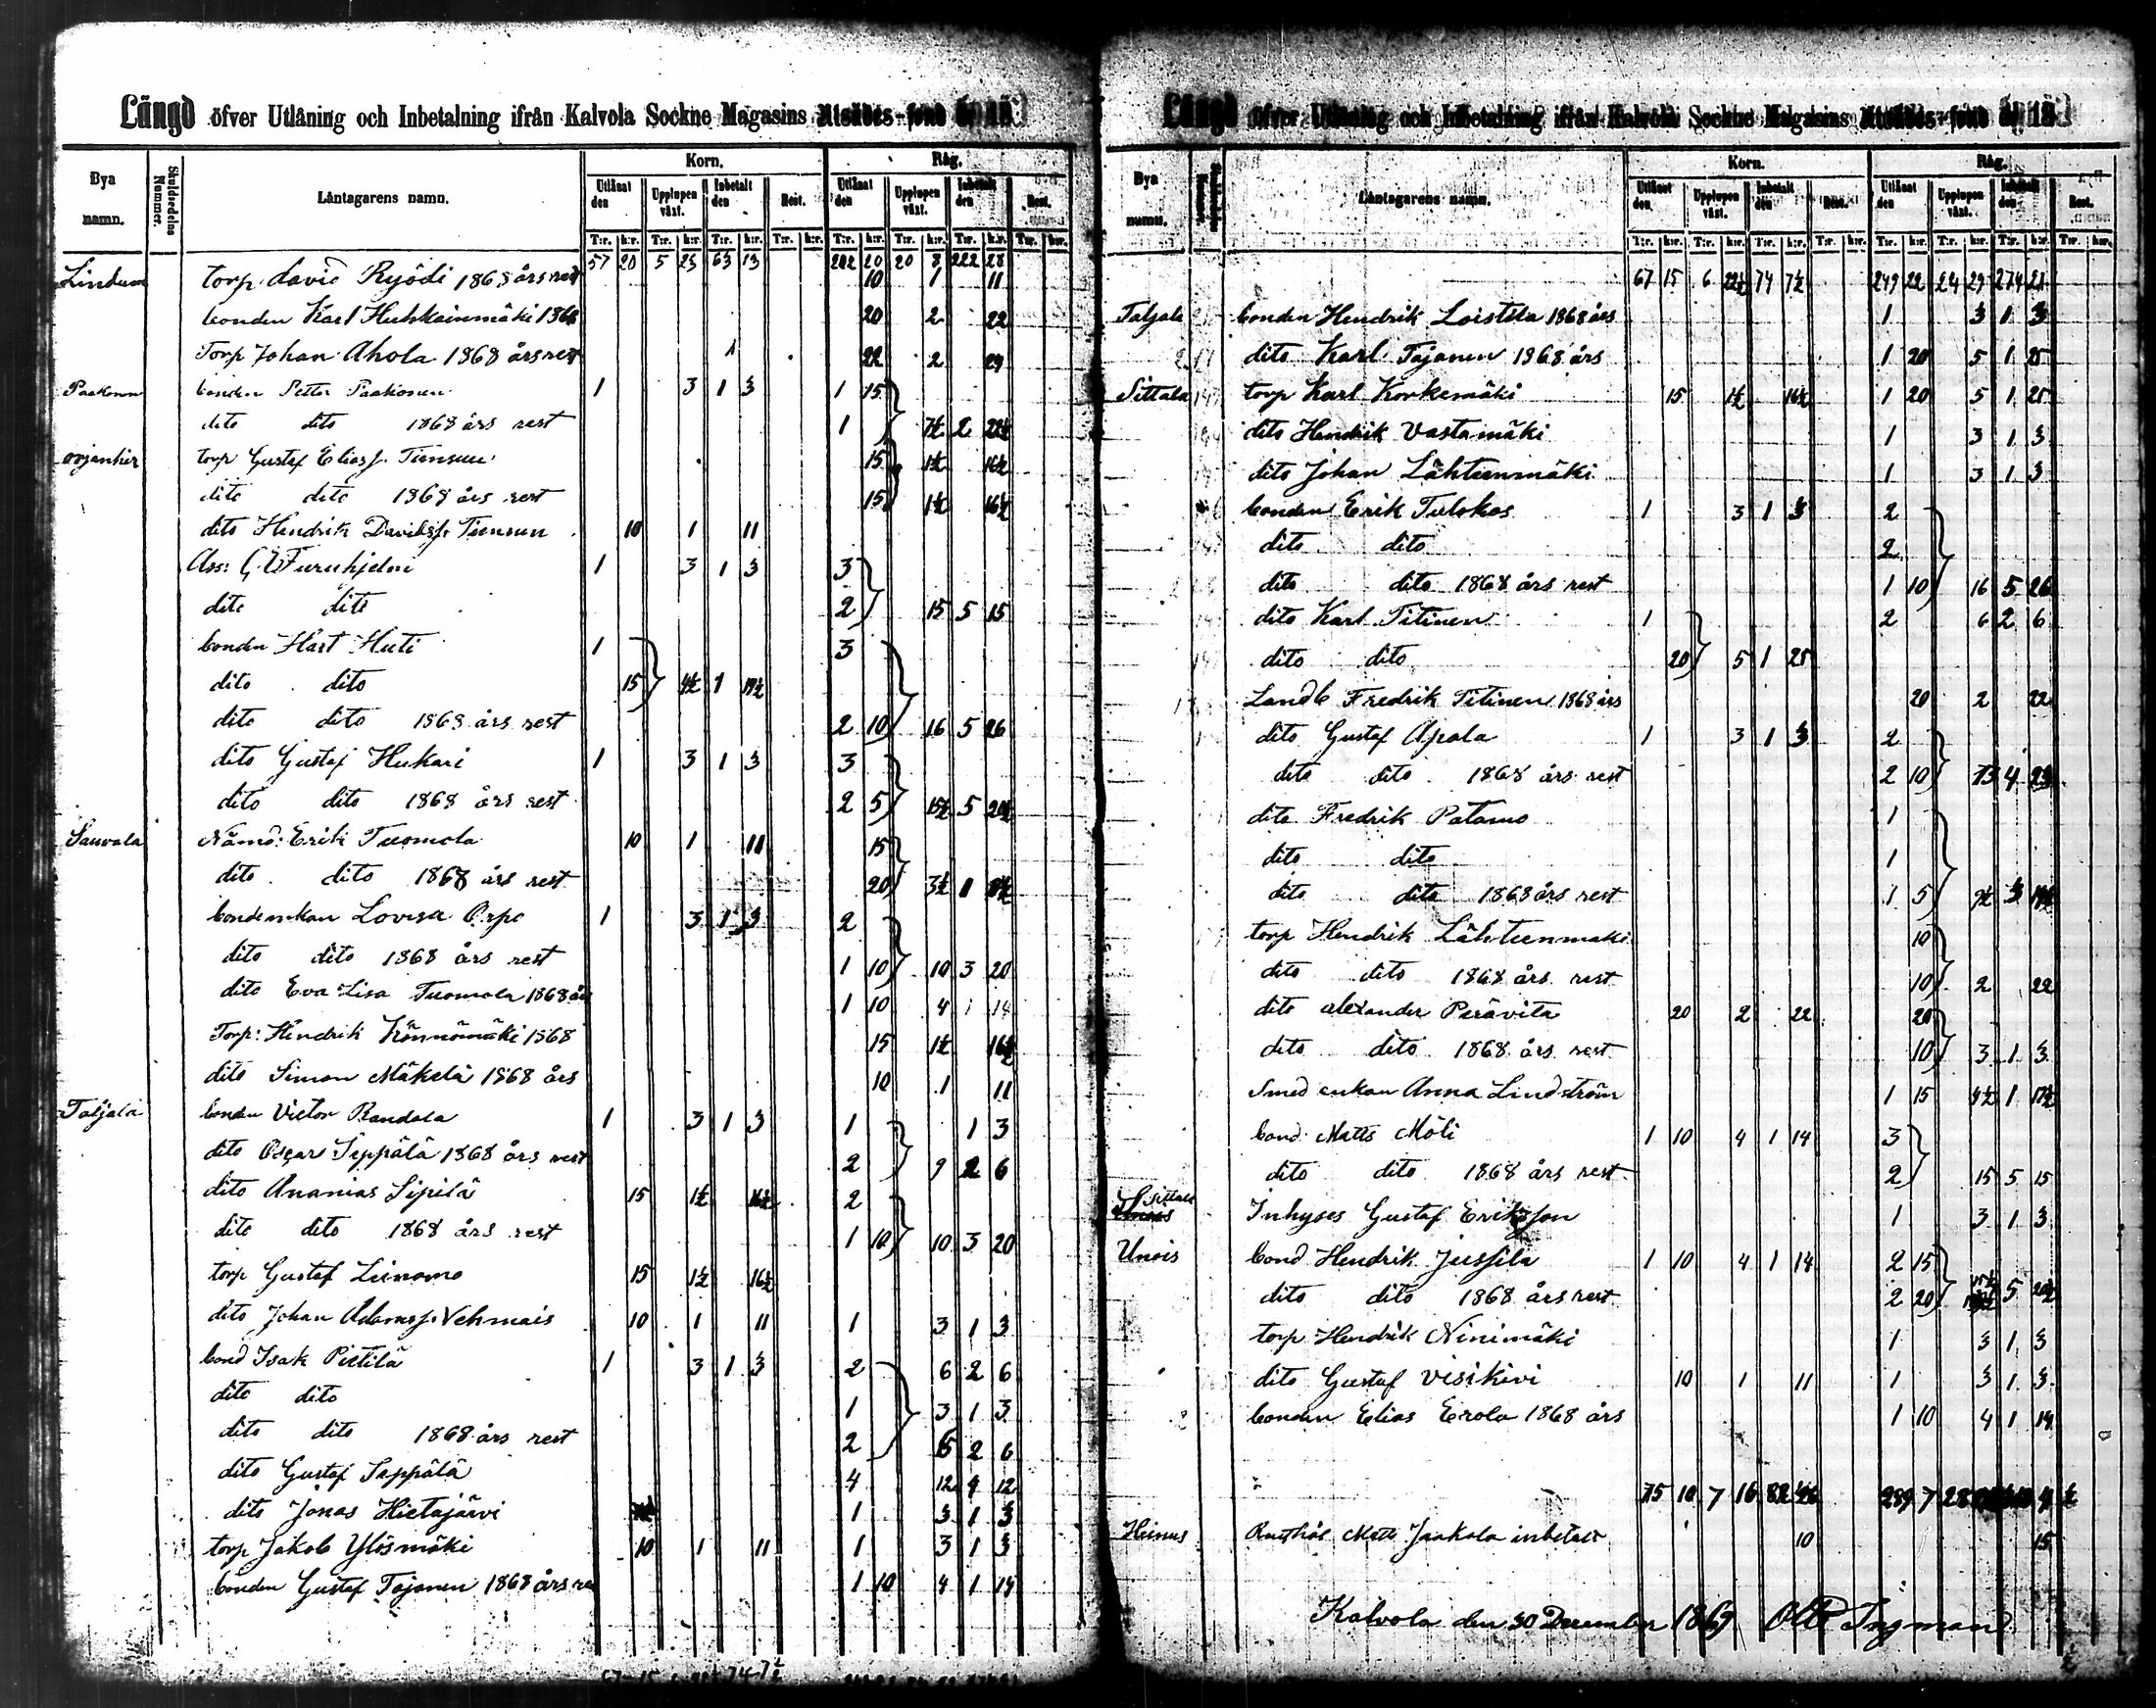 Längd öfver Utlåning och Inbetalning ifrån Kalvola Sockne Magasins Utsädes-fond år 18
Bya namn. Skuldsedelns Nummer. Låntagarens namn. Korn. Råg.
Utlånat den Upplupen växt. Inbetalt den Rest. Utlånat den Upplupen växt. Inbetalt den Rest.
T:r. k:r. T:r. k:r. T:r. k:r. T:r. k:r. T:r. k:r. T:r. k:r. T:r. k:r. T:r. k:r.
57 20 5 23 63 13 202 20 20 8 222 28
Lindum torp. david Ryödi 1868 års rest 10 1 11
bonden Karl Huhkainmäki 1868 20 2 22
Torp Johan Ahola 1868 års rest 22 2 24
Paakonen bonden Petter Paakonen 1 3 1 3 1 15
dito dito 1868 års rest 1 7½ 2 22½
torp Gustaf Eliass. Tiensuu 15 1½ 16½
dito dito 1868 års rest 15 1½ 16½
dito Hendrik Davidss. Tiensuu 10 1 11
Ass: G. Furuhjelm 1 3 1 3 3
dito dito 2 15 5 15
bonden Huti 1 3
dito dito 15 4½ 1 19½
dito dito 1868 års rest 2 10 16 5 26
dito Gustaf Hukari 1 3 1 3 3
dito dito 1868 års rest 2 5 15½ 5 20½
Sauvala Nämd: Erik Tuomola 10 1 11 15
dito dito 1868 års rest 20 3½ 1 8½
bondenkan Lovisa Orpo 1 3 1 3 2
dito dito 1868 års rest 1 10 10 3 20
dito Eva Lisa Tuomola 1868 års 1 10 4 1 14
Torp: Hendrik Könnömäki 1868 15 1½ 16½
dito Simon Mäkelä 1868 års 10 1 11
Taljala bonden Victor Randala 1 3 1 3 1 1 3
dito Oscar Seppälä 1868 års rest 2 9 2 6
dito Ananias Sipilä 15 1½ 16½ 2
dito dito 1868 års rest 1 10 10 3 20
torp Gustaf Liinamo 15 1½ 16½
dito Johan Adamss. Vehmais 10 1 11 1 3 1 3
bond Isak Pietilä 1 3 1 3 2 6 2 6
dito dito 1 3 1 3
dito dito 1868 års rest 2 6 2 6
dito Gustaf Seppälä 4 12 4 12
dito Jonas Hietajärvi 1 3 1 3
torp Jakob Ylösmäki 10 1 11 1 3 1 3
bonden Gustaf Tajanen 1868 års re 1 10 4 1 14
Längd öfver Utlåning och Inbetalning ifrån Kalvola Sockne Magasins Utsädes-fond år 18
Bya namn. Låntagarens namn. Korn. Råg.
Utlånat den Upplupen växt. Inbetalt den Rest. Utlånat den Upplupen växt. Inbetalt den Rest.
T:r. k:r. T:r. k:r. T:r. k:r. T:r. k:r. T:r. k:r. T:r. k:r. T:r. k:r. T:r. k:r.
67 15 6 22½ 74 7½ 249 22 24 29 274 21
Taljala bonden Hendrik Loistila 1868 års 1 3 1 3
dito Karl Tajanen 1868 års 1 20 5 1 25
Sittala torp Karl Korkemäki 15 1½ 16½ 1 20 5 1 25
dito Hendrik Vastamäki 1 3 1 3
dito Johan Lähteenmäki 1 3 1 3
bonden Erik Tulokas 1 3 1 3 2
dito dito 2
dito dito 1868 års rest 1 10 16 5 26
dito Karl Titinen 1 2 6 2 6
dito dito 20 5 1 25
Landb Fredrik Titinen 1868 års 20 2 22
dito Gustaf Apala 1 3 1 3 2
dito dito 1868 års rest 2 10 13 4 23
dito Fredrik Patamo 1
dito dito 1
dito dito 1868 års rest 1 5 9½ 3
torp Hendrik Lähteenmaki 10
dito dito 1868 års rest 10 2 22
dito alexander Perävita 20 2 22 20
dito dito 1868 års rest 10 3 1 3
Smed enkan Anna Lindström 1 15 4½ 1 19½
bond Matts Möli 1 10 4 1 14 3
dito dito 1868 års rest 2 15 5 15
Sittala Inhyses Gustaf Eriksson 1 3 1 3
Unois bond Hendrik Jussila 1 10 4 1 14 2 15
dito dito 1868 års rest 2 20 15½ 5 20½
torp Hendrik Ninimäki 1 3 1 3
dito Gustaf Visikivi 10 1 11 1 3 1 3
bonden Elias Erola 1868 års 1 10 4 1 14
75 10 7 16 82 26 289 7 28
Heinus Rusthål Matts Jaakola inbetalt 10 15
Kalvola den 30 December 1869 Otto Ingman